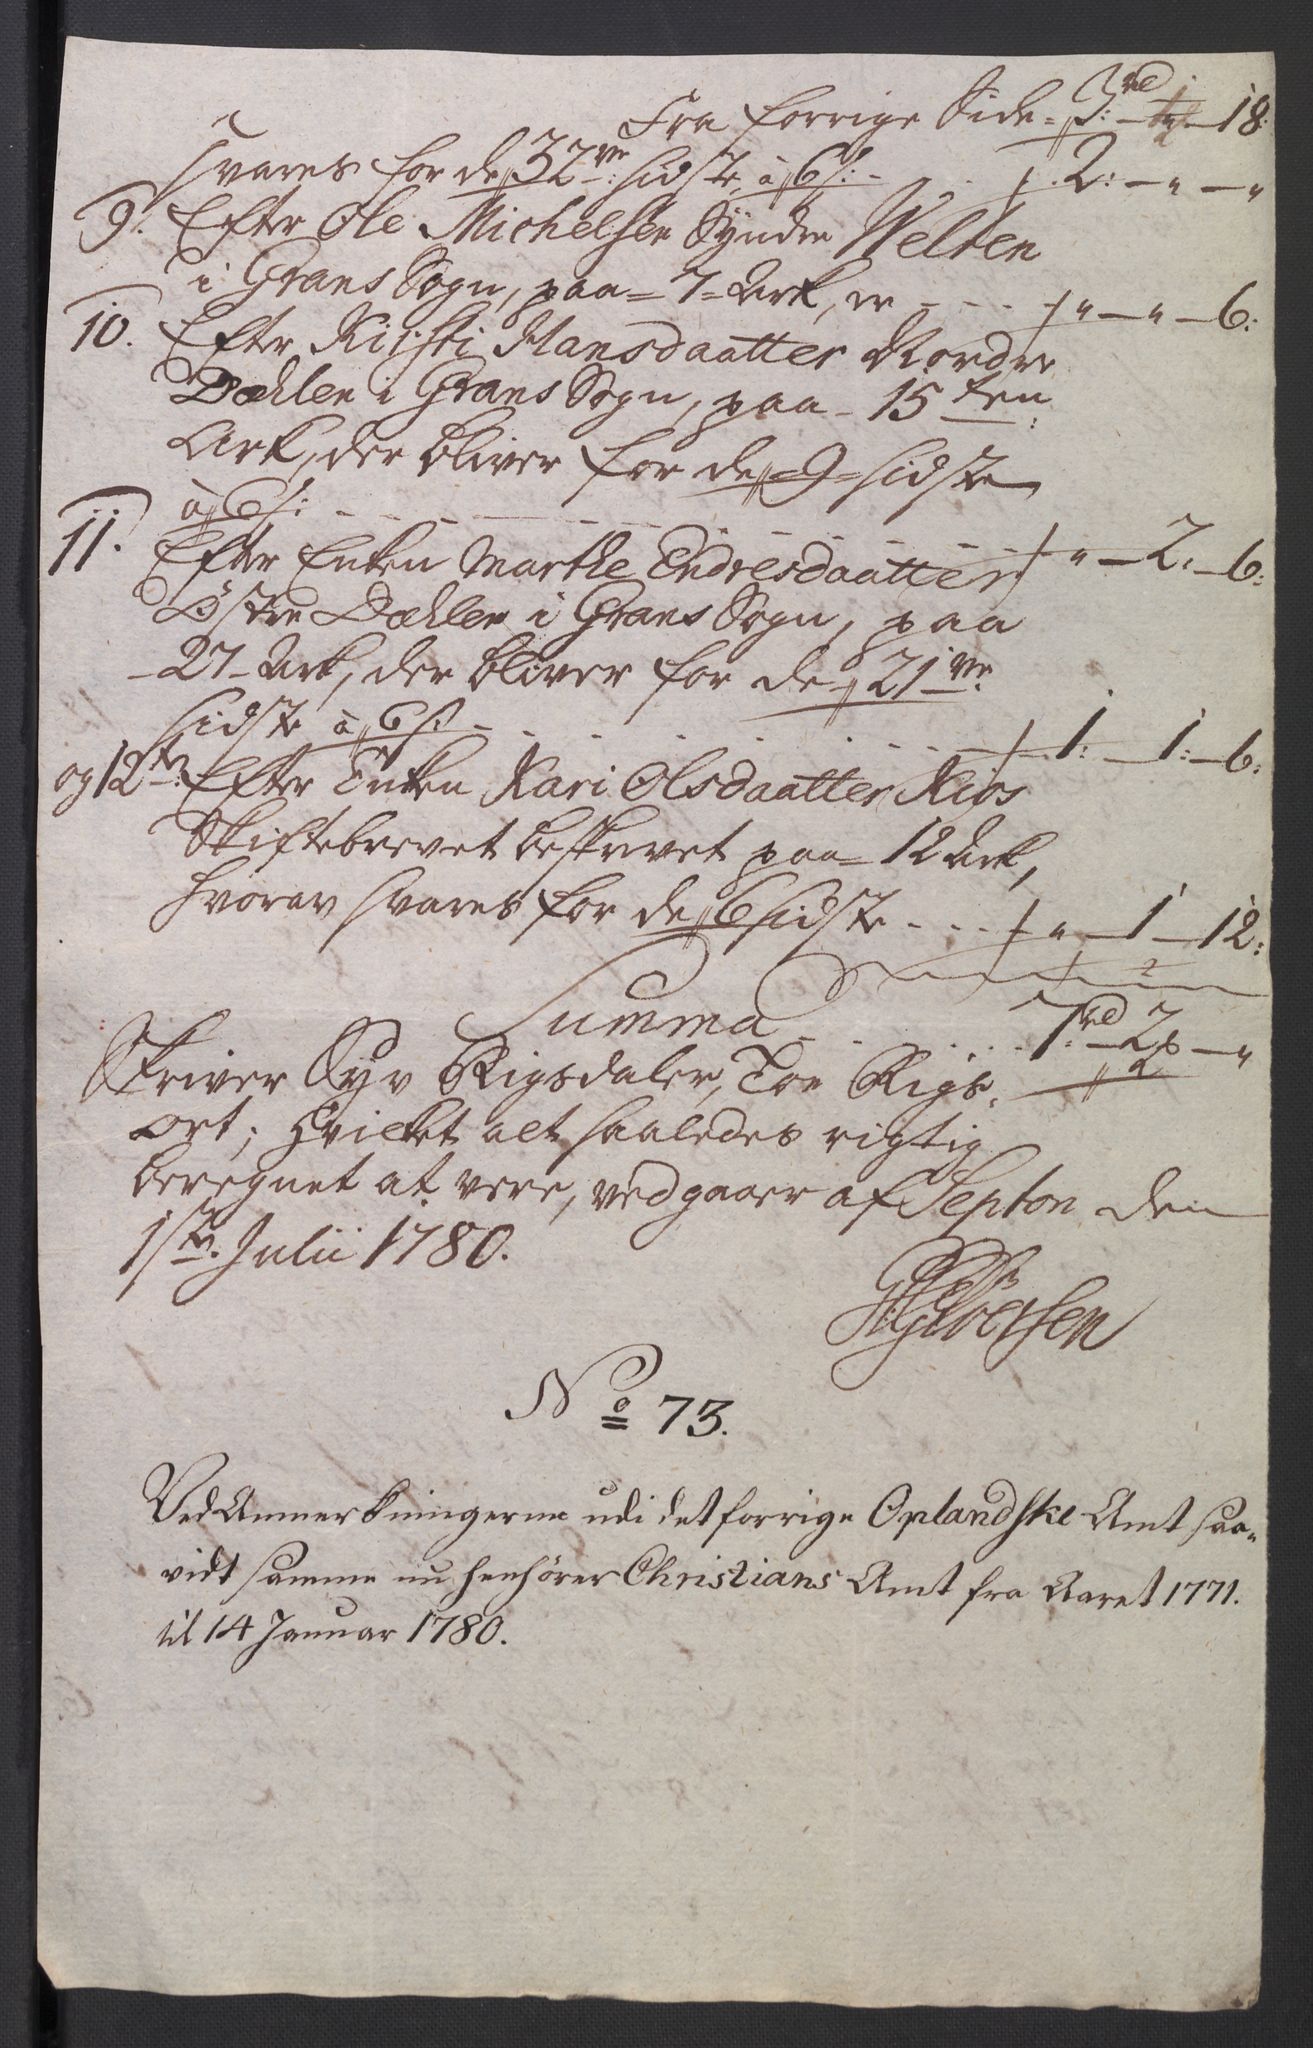 Fra forrige Side = 3 rd — 1 — 18:
svares for de 32ve sidste, à 6 s: - . 2: — " — "
9. Efter Ole Michelsen Syndre Welten
i Grans Sogn, paa = 7 = Ark, er - - - " — " — 6:
10. Efter Kirsti Hansdaatter Nordre
Dæhlen i Grans Sogn, paa - 15ten
Ark, der bliver for de = 9 = sidste
à 6 s: - - - " — 2: — 6:
11. Efter Enken Marthe Endresdaatter
Østre Dæhlen i Grans Sogn, paa
- 27 - Ark, der bliver for de 21ve
sidste à 6 s: - - - 1: — 1: — 6:
og 12te: Efter Enken Kari Olsdaatter Kios
Skiftebrevet beskrevet paa = 12 Ark,
hvorav svares for de 6 sidste - - - " — 1 — 12:
Summa - - - 7 rd: — 2 — "
Skriver Syv Rigsdaler, Toe Rigs-
ort; hvilket alt saaledes rigtig
beregnet at være, vedgaaer af Septon den
1ste Julii 1780.
No 73.
Ved Anmerkningerne udi det forrige Oplandske Amt saa-
vidt samme nu henhører Christians Amt fra Aaret 1771.
til 14 Januar 1780.